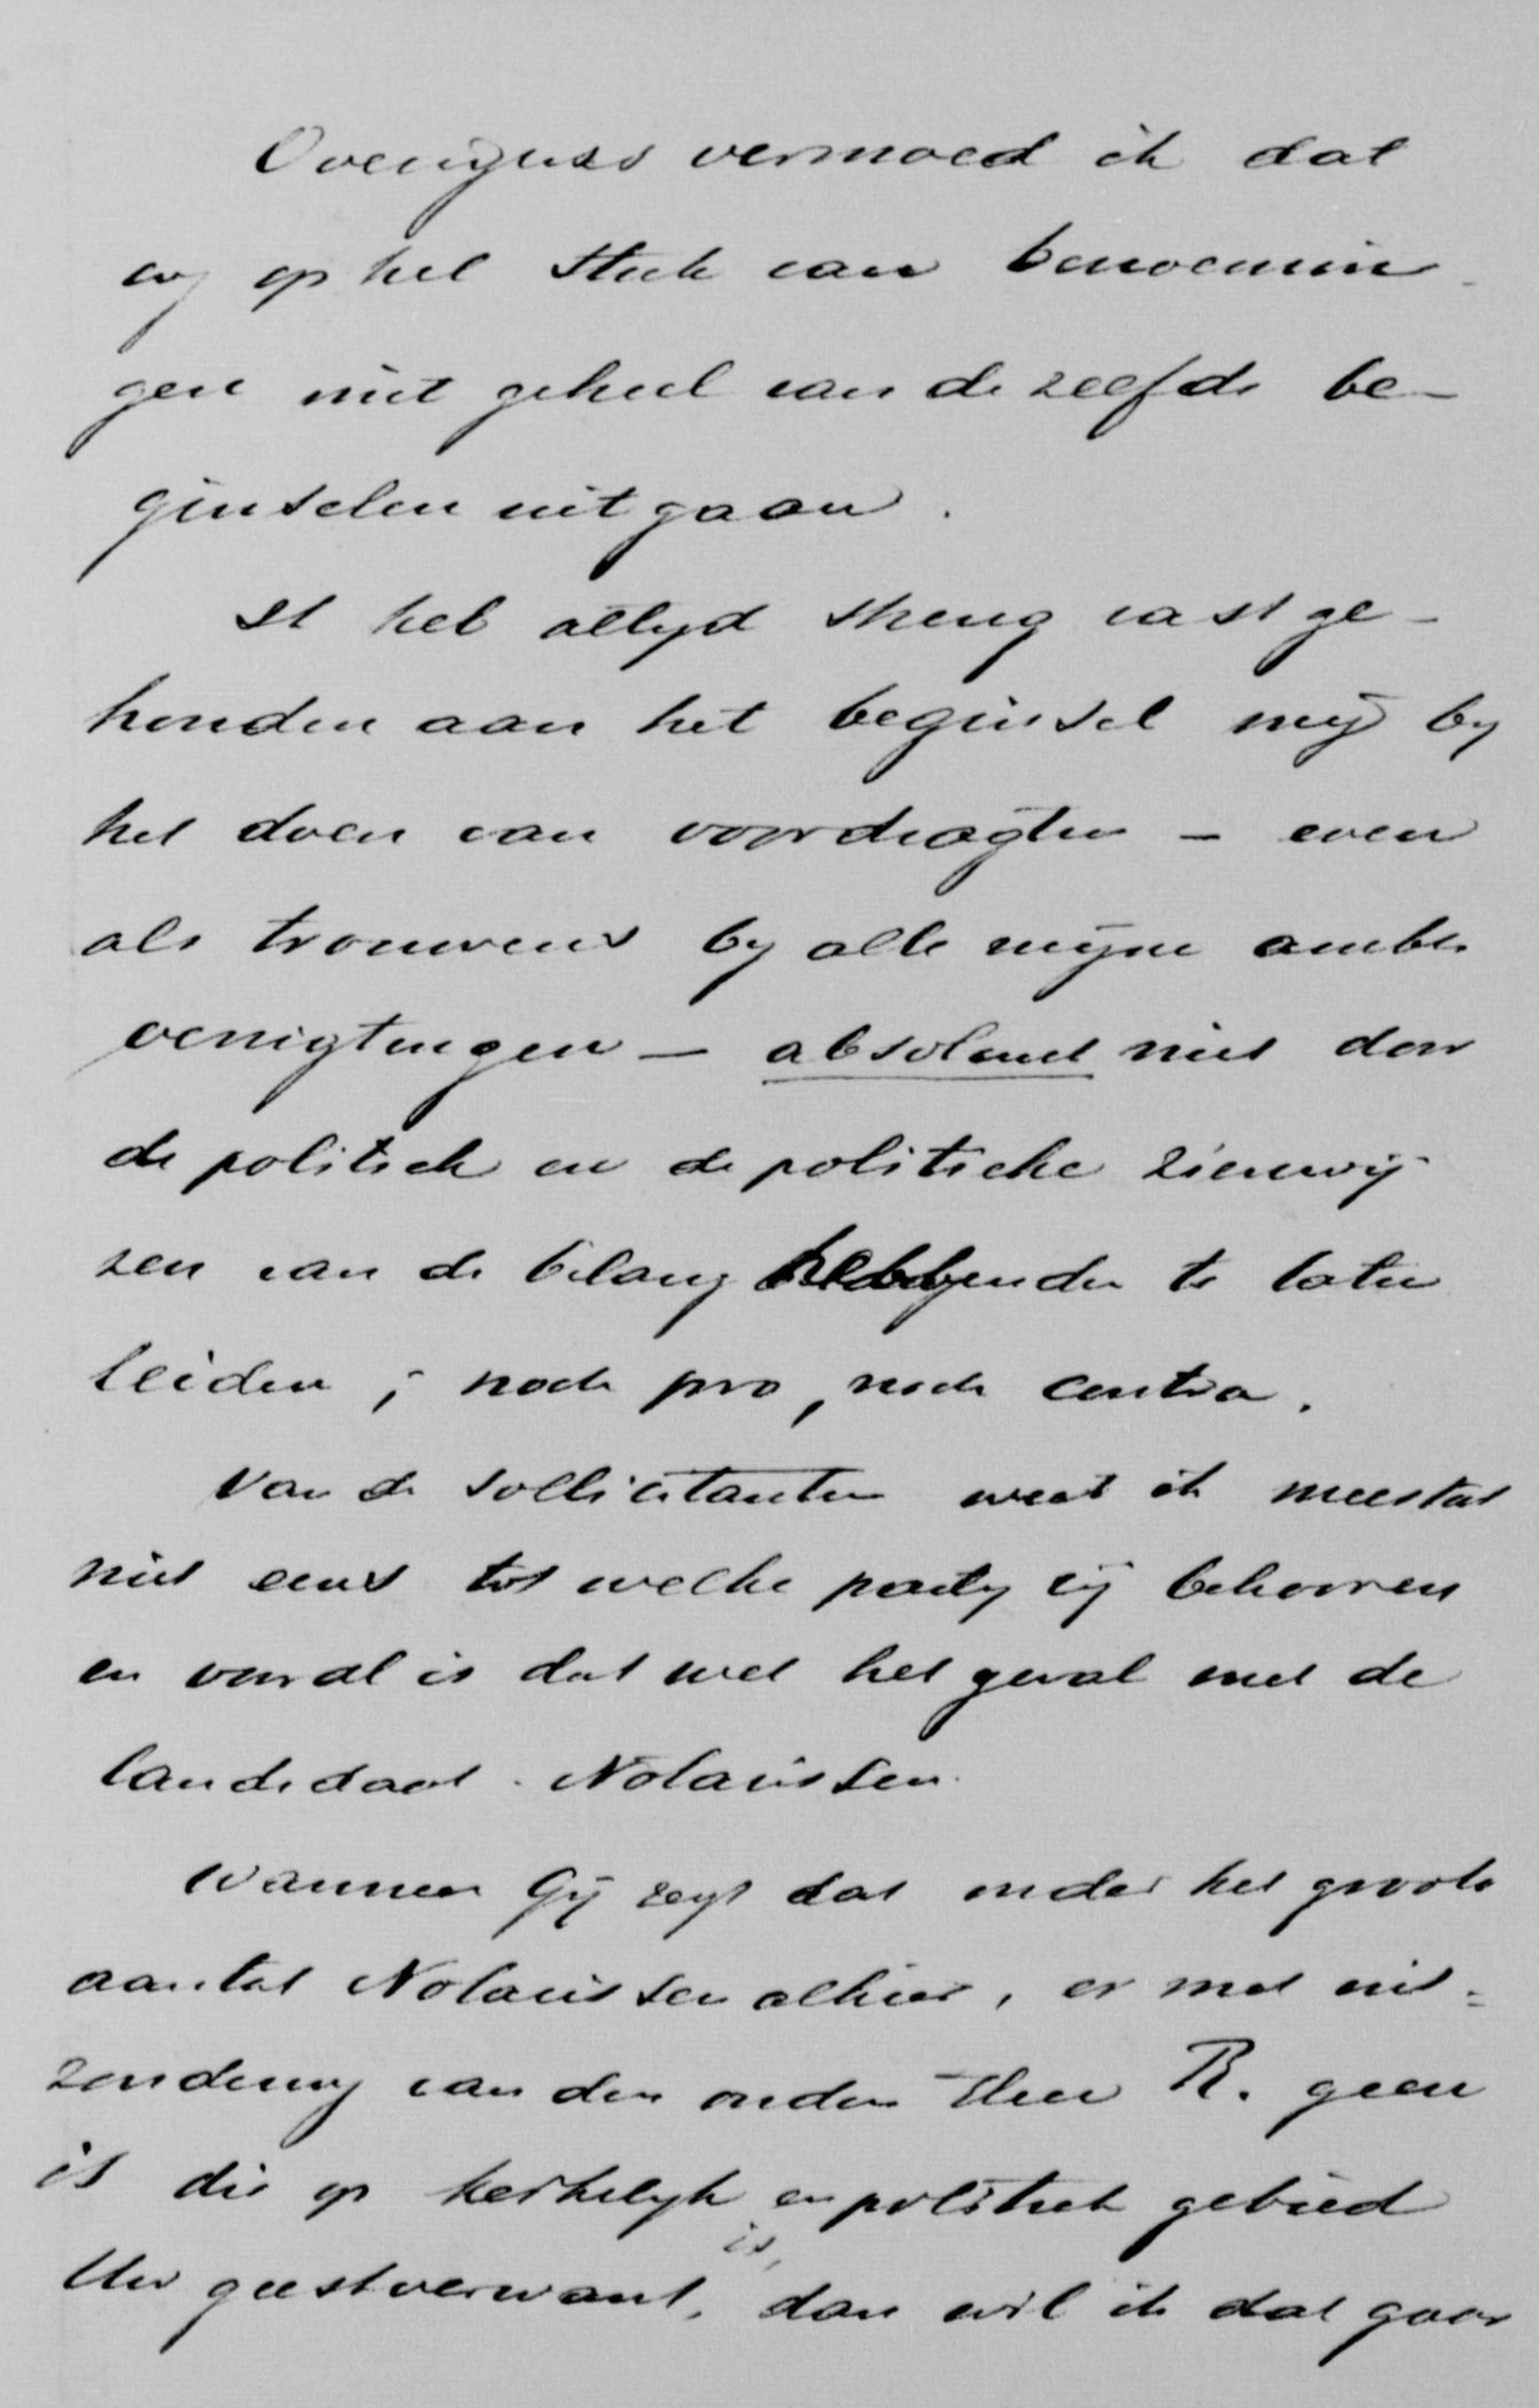 Overigens vermoed ik dat
wij op het stuk van benoemin-
gen niet geheel van dezelfde be-
ginselen uitgaan.
Ik heb altyd streng vastge-
houden aan het beginsel mij by
het doen van voordragten – even
als trouwens by alle mijne ambts
verrigtingen – absoluut niet door
de politiek en de politieke zienswij-
zen van de belanghebbenden te laten
leiden; noch pro, noch contra.
Van de sollicitanten weet ik meestal
niet eens tot welke party zij behooren
en vooral is dat wel het geval met de
Candidaat-Notarissen.
Wanneer Gij zegt dat onder het groote
aantal Notarissen alhier, er met uit=
zondering van den ouden Heer R. geen
is die op kerkelyk en politiek gebied
Uw geestverwant is, dan wil ik dat gaar